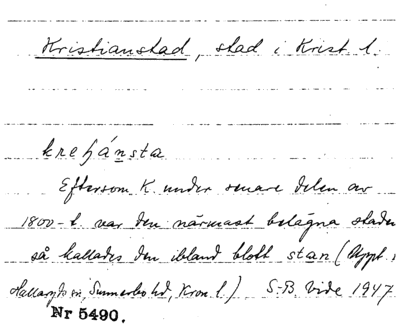 Kristianstad, stad i Krist l.
kreɧánsta
Eftersom K. under senare delen av
1800-t. var den närmast belägna staden
så kallades den ibland blott stan (Uppt. i
Hallaryds sn, Sunnerbo hd, Kron. l.) S-B. Vide 1947
Nr 5490.